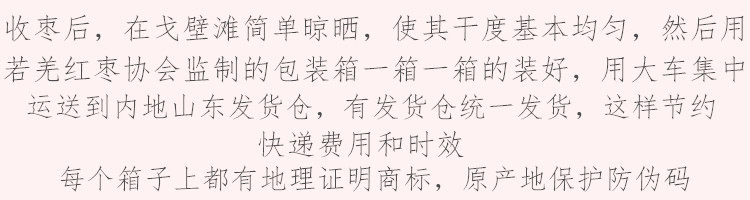 收枣后，在戈壁滩简单晾晒，使其干度基本均匀，然后用
若羌红枣协会监制的包装箱一箱一箱的装好，用大车集中
运送到内地山东发货仓，有发货仓统一发货，这样节约
快递费用和时效
每个箱子上都有地理证明商标，原产地保护防伪码